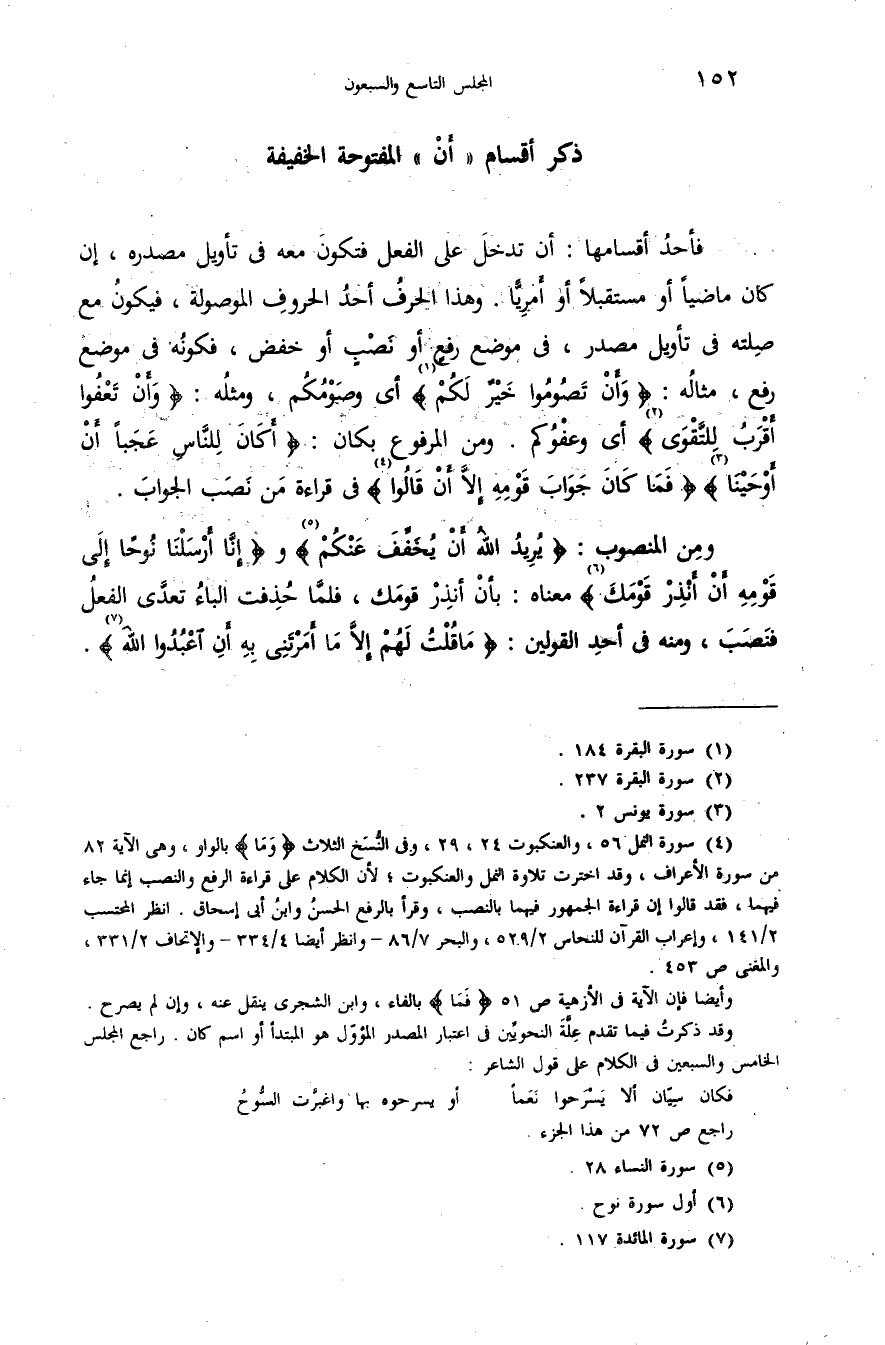 ١٥٢
المجلس التاسع والسبعون
ذكر أقسام « أَنْ » المفتوحة الخفيفة
فأحدُ أقسامها : أن تدخلَ على الفعل فتكونَ معه فى تأويل مصدره ، إن
كان ماضياً أو مستقبلاً أو أَمرِيًّا . وهذا الحرفُ أحدُ الحروفِ الموصولة ، فيكونُ مع
صِلته فى تأويل مصدر ، فى موضع رفعٍ أو نَصْبٍ أو خفض ، فكونُه فى موضع
رفع ، مثالُه : ﴿ وَأَنْ تَصُومُوا خَيْرٌ لَكُمْ ﴾(١) أى وصَوْمُكُم ، ومثلُه : ﴿ وَأَنْ تَعْفُوا
أَقْرَبُ لِلتَّقْوَى ﴾(٢) أى وعفْوُكم . ومن المرفوع بكان : ﴿ أَكَانَ لِلنَّاسِ عَجَباً أَنْ
أَوْحَيْنَا ﴾(٣) ﴿ فَمَا كَانَ جَوَابَ قَوْمِهِ إِلاَّ أَنْ قَالُوا ﴾(٤) فى قراءة مَن نَصَب الجوابَ .
ومِن المنصوب : ﴿ يُرِيدُ اللهُ أَنْ يُخَفِّفَ عَنْكُمْ ﴾(٥) و ﴿ إِنَّا أَرْسَلْنَا نُوحًا إِلَى
قَوْمِهِ أَنْ أَنْذِرْ قَوْمَكَ ﴾(٦) معناه : بأنْ أنذِرْ قومَك ، فلمَّا حُذِفت الباءُ تعدَّى الفعلُ
فنَصَبَ ، ومنه فى أحدِ القولين : ﴿ مَاقُلْتُ لَهُمْ إِلاَّ مَا أَمَرْتَنِى بِهِ أَنِ آعْبُدُوا اللهَ ﴾(٧) .
(١) سورة البقرة ١٨٤ .
(٢) سورة البقرة ٢٣٧ .
(٣) سورة يونس ٢ .
(٤) سورة النمل ٥٦ ، والعنكبوت ٢٤ ، ٢٩ ، وفى النُّسَخ الثلاث ﴿ وَمَا ﴾ بالواو ، وهى الآية ٨٢
من سورة الأعراف ، وقد اخترت تلاوة النمل والعنكبوت ؛ لأن الكلام على قراءة الرفع والنصب إنما جاء
فيهما ، فقد قالوا إن قراءة الجمهور فيهما بالنصب ، وقرأ بالرفع الحسنُ وابنُ أبى إسحاق . انظر المحتسب
١٤١/٢ ، وإعراب القرآن للنحاس ٥٢٩/٢ ، والبحر ٨٦/٧ – وانظر أيضا ٣٣٤/٤ – والإتحاف ٣٣١/٢ ،
والمغنى ص ٤٥٣ .
وأيضا فإن الآية فى الأزهية ص ٥١ ﴿ فَمَا ﴾ بالفاء ، وابن الشجرى ينقل عنه ، وإن لم يصرح .
وقد ذكرتُ فيما تقدم عِلَّةَ النحويِّين فى اعتبار المصدر المؤوّل هو المبتدأ أو اسم كان . راجع المجلس
الخامس والسبعين فى الكلام على قول الشاعر :
فكان سِيّان ألا يَسْرَحوا نَعَماً أو يسرحوه بها واغبرَّت السُّوحُ
راجع ص ٧٢ من هذا الجزء .
(٥) سورة النساء ٢٨ .
(٦) أول سورة نوح .
(٧) سورة المائدة ١١٧ .